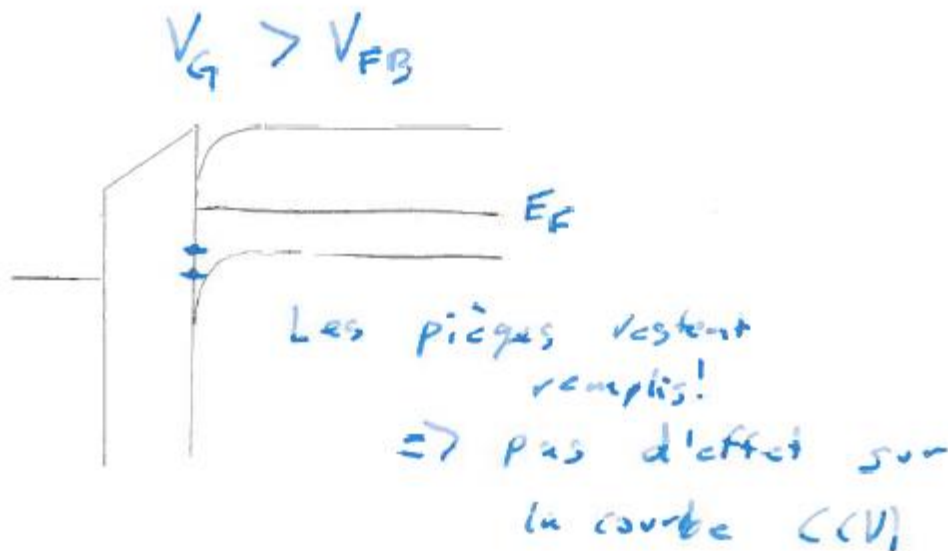 V_G > V_FB
E_F
Les pièges restent
remplis!
=> pas d'effet sur
la courbe C(V)